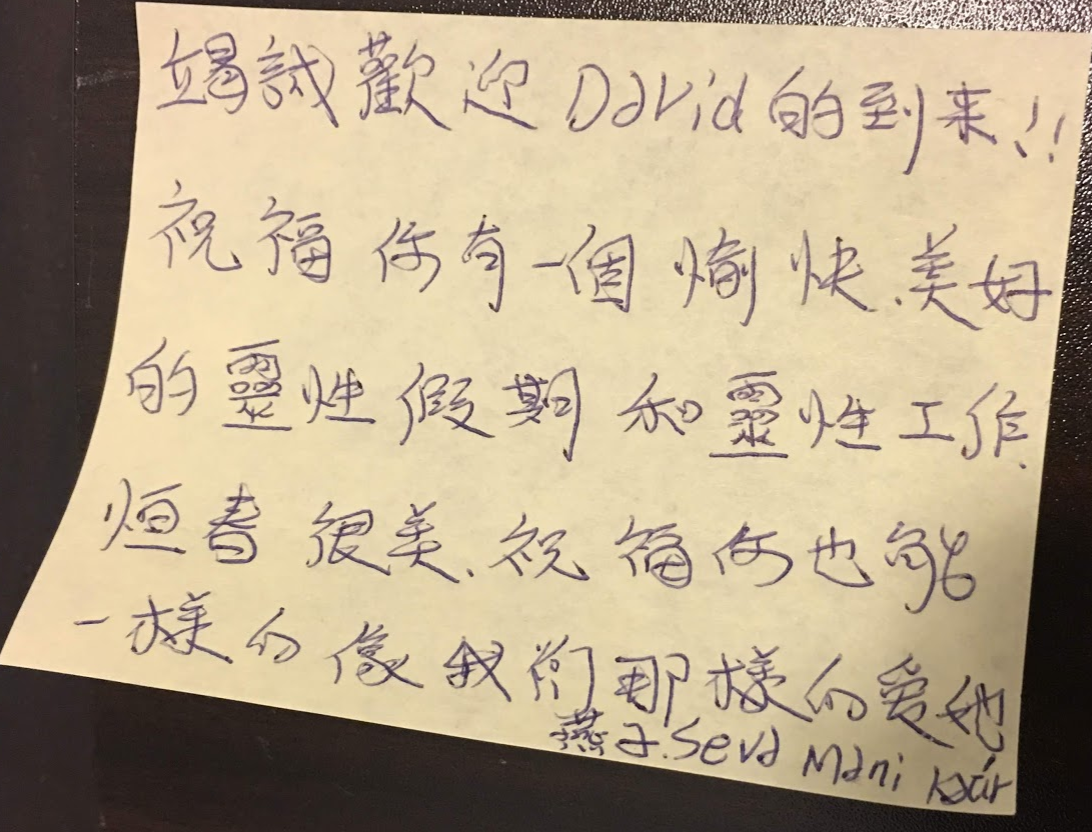 竭誠歡迎 David 的到来!!
祝福你有一個愉快、美好
的靈性假期和靈性工作.
恒春很美、祝福你也能
一樣的像我们那樣的爱她
燕子. Seva Mani Kaur